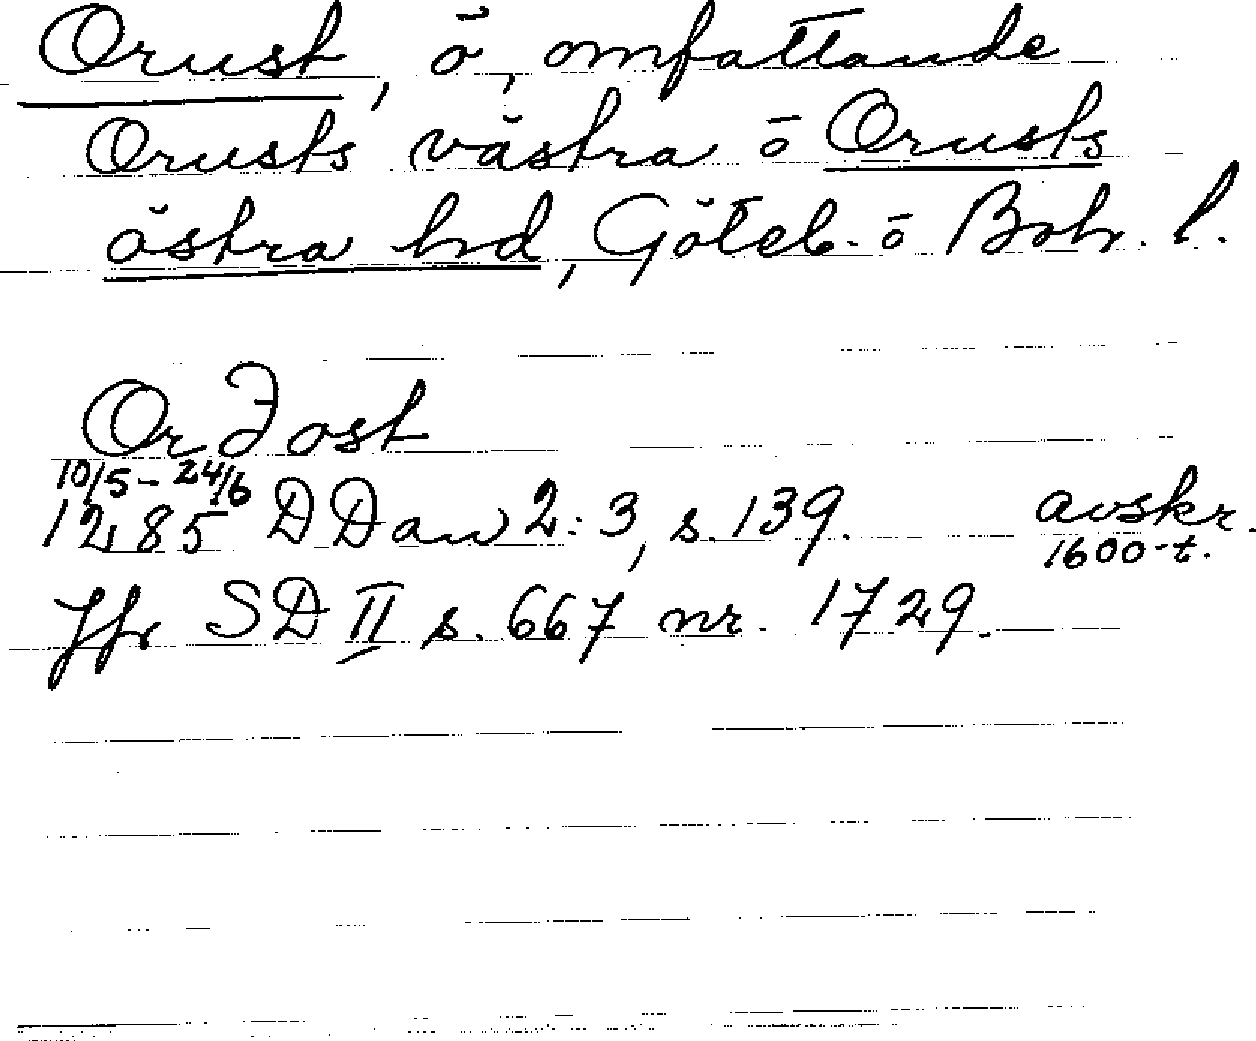 Orust, ö, omfattande
Orusts västra o Orusts
östra hd, Göteb. o Boh. l.
Or Jost
10/5 - 24/6
1285 DDan 2:3, s. 139. avskr.
1600-t.
Jfr SD II s. 667 nr. 1729.